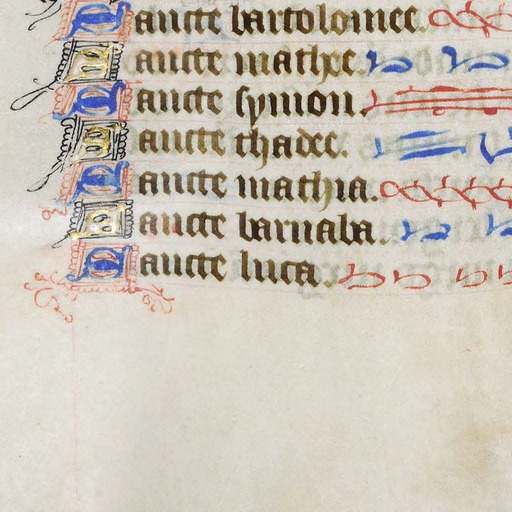 Sancte bartolomee.
Sancte mathee.
Sancte symon.
Sancte thadee.
Sancte mathia.
Sancte barnaba.
Sancte luca.